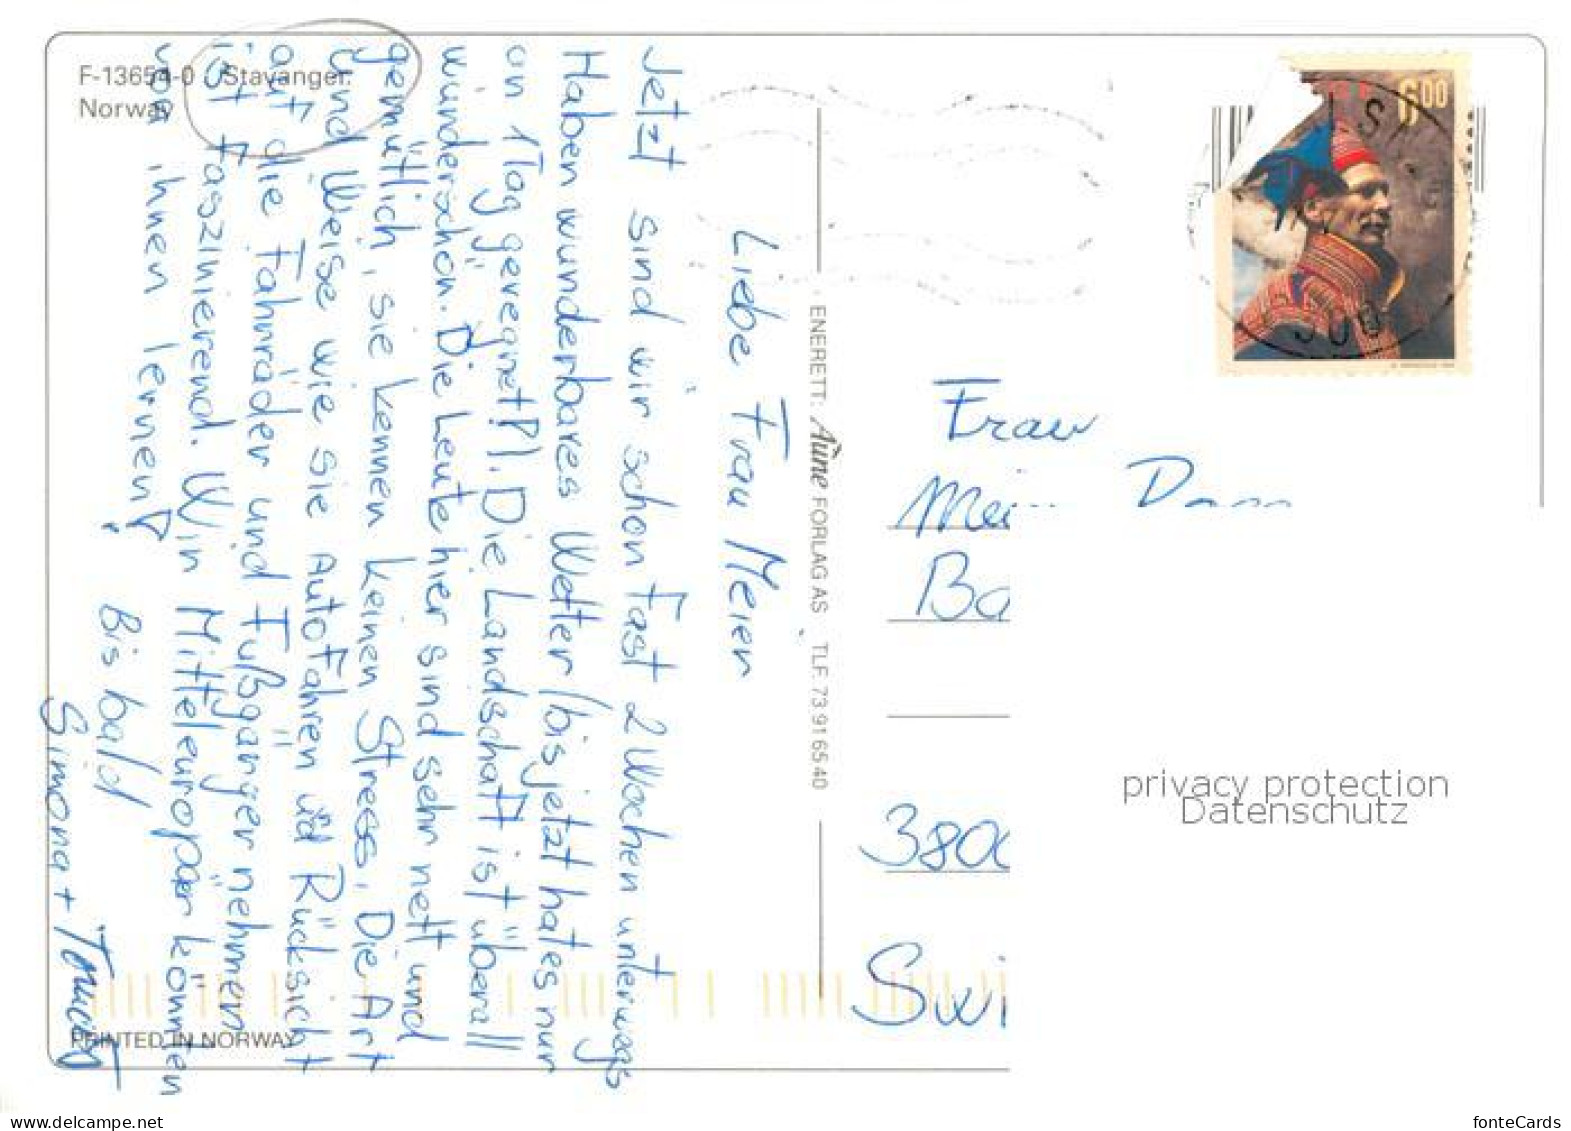 F-13654-0 Stavanger.
Norway
Liebe Frau Meier
Jetzt sind wir schon fast 2 Wochen unterwegs
Haben wunderbares Wetter (bis jetzt hat es nur
an 1 Tag geregnet!!). Die Landschaft ist überall
wunderschön. Die Leute hier sind sehr nett und
gemütlich, sie kennen keinen Stress. Die Art
und Weise wie sie Autofahren üd Rücksicht
auf die Fahrräder und Fußgänger nehmen
ist faszinierend. Win Mitteleuropäer könnten
von ihnen lernen!
Bis bald
Simona +
ENERETT: Aune FORLAG AS TLF. 73 91 65 40
PRINTED IN NORWAY
6.00
Frau
Swi
privacy protection
Datenschutz
fonteCards
www.delcampe.net